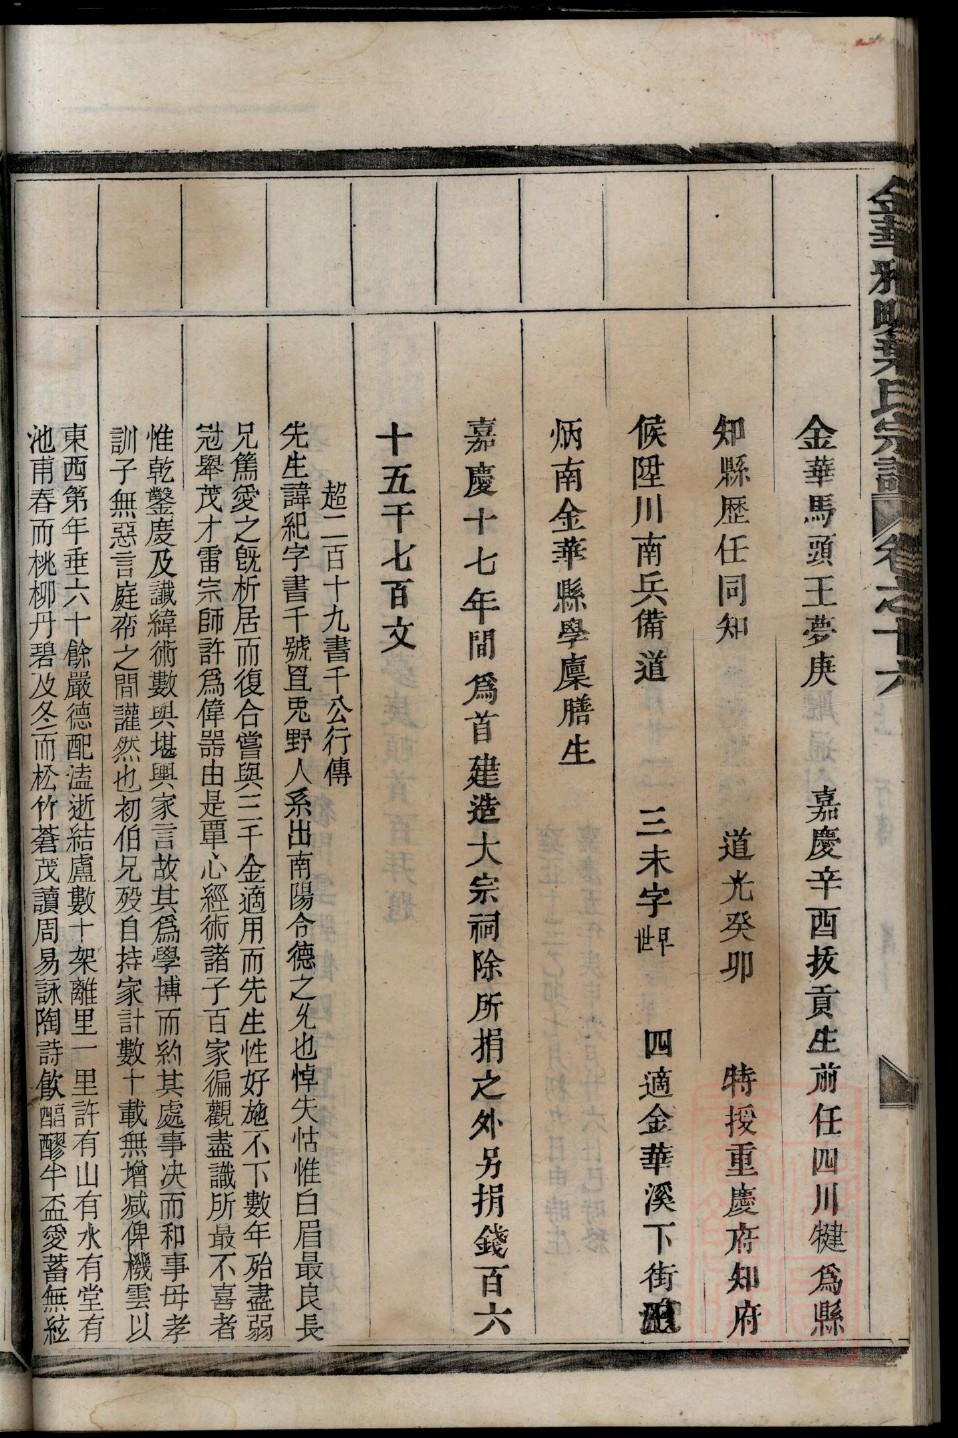 金華雅畈葉氏宗譜 卷之十六
金華馬頭王夢庚 嘉慶辛酉拔貢生前任四川犍爲縣
知縣歷任同知 道光癸卯 特授重慶府知府
候陞川南兵備道 三未字世早 四適金華溪下街
炳南金華縣學廩膳生
嘉慶十七年間爲首建造大宗祠除所捐之外另捐錢百六
十五千七百文
超二百十九書千公行傳
先生諱紀字書千號罝兎野人系出南陽令德之允也悼失怙惟白眉最良長
兄篤愛之旣析居而復合嘗與三千金適用而先生性好施不下數年殆盡弱
冠舉茂才雷宗師許爲偉器由是單心經術諸子百家徧觀盡識所最不喜者
惟乾鑿慶及讖緯術數與堪輿家言故其爲學博而約其處事决而和事毋孝
訓子無惡言庭帟之間讙然也初伯兄歿自持家計數十載無增减俾機雲以
東西第年垂六十餘嚴德配溘逝結盧數十架離里一里許有山有水有堂有
池甫春而桃柳丹碧及冬而松竹蒼茂讀周易詠陶詩飲醽醪半盃愛蓄無絃